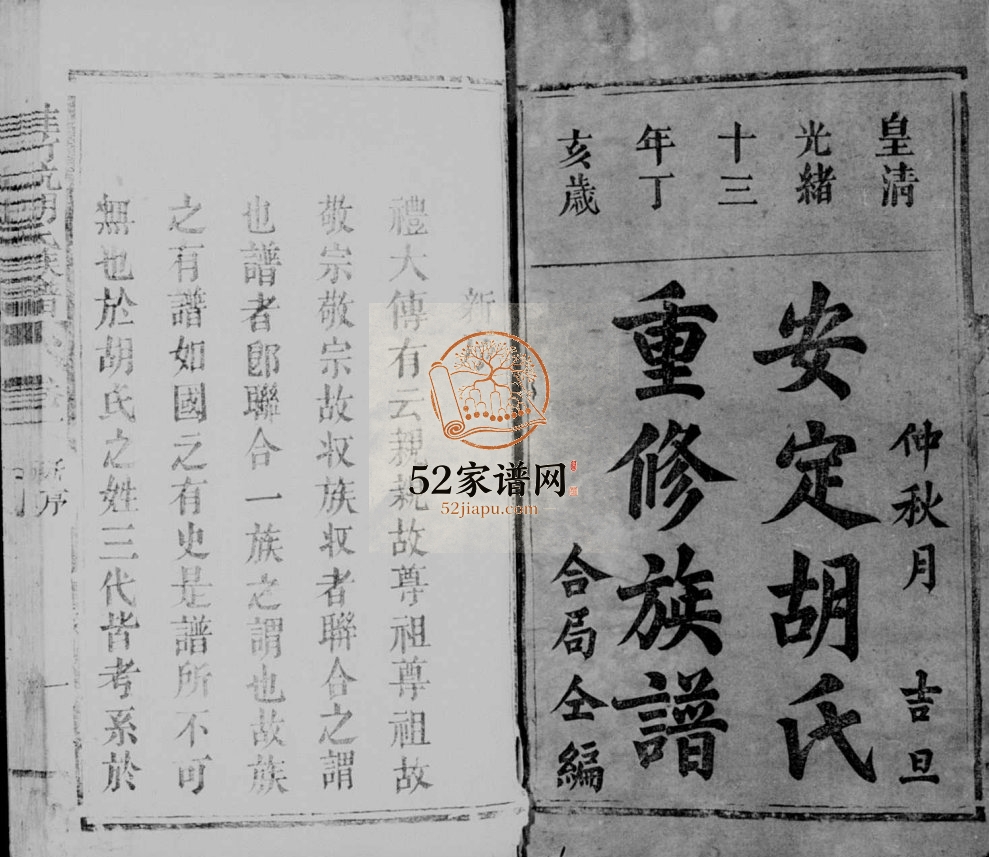 皇清
光緒
十三
年丁
亥歲
仲秋月 吉旦
安定胡氏
重修族譜
合局仝編
新
禮大傳有云親親故尊祖尊祖故
敬宗敬宗故収族収者聯合之謂
也譜者卽聯合一族之謂也故族
之有譜如國之有史是譜所不可
無也於胡氏之姓三代皆考系於
胡氏族譜
新序
一
52家谱网
52jiapu.com